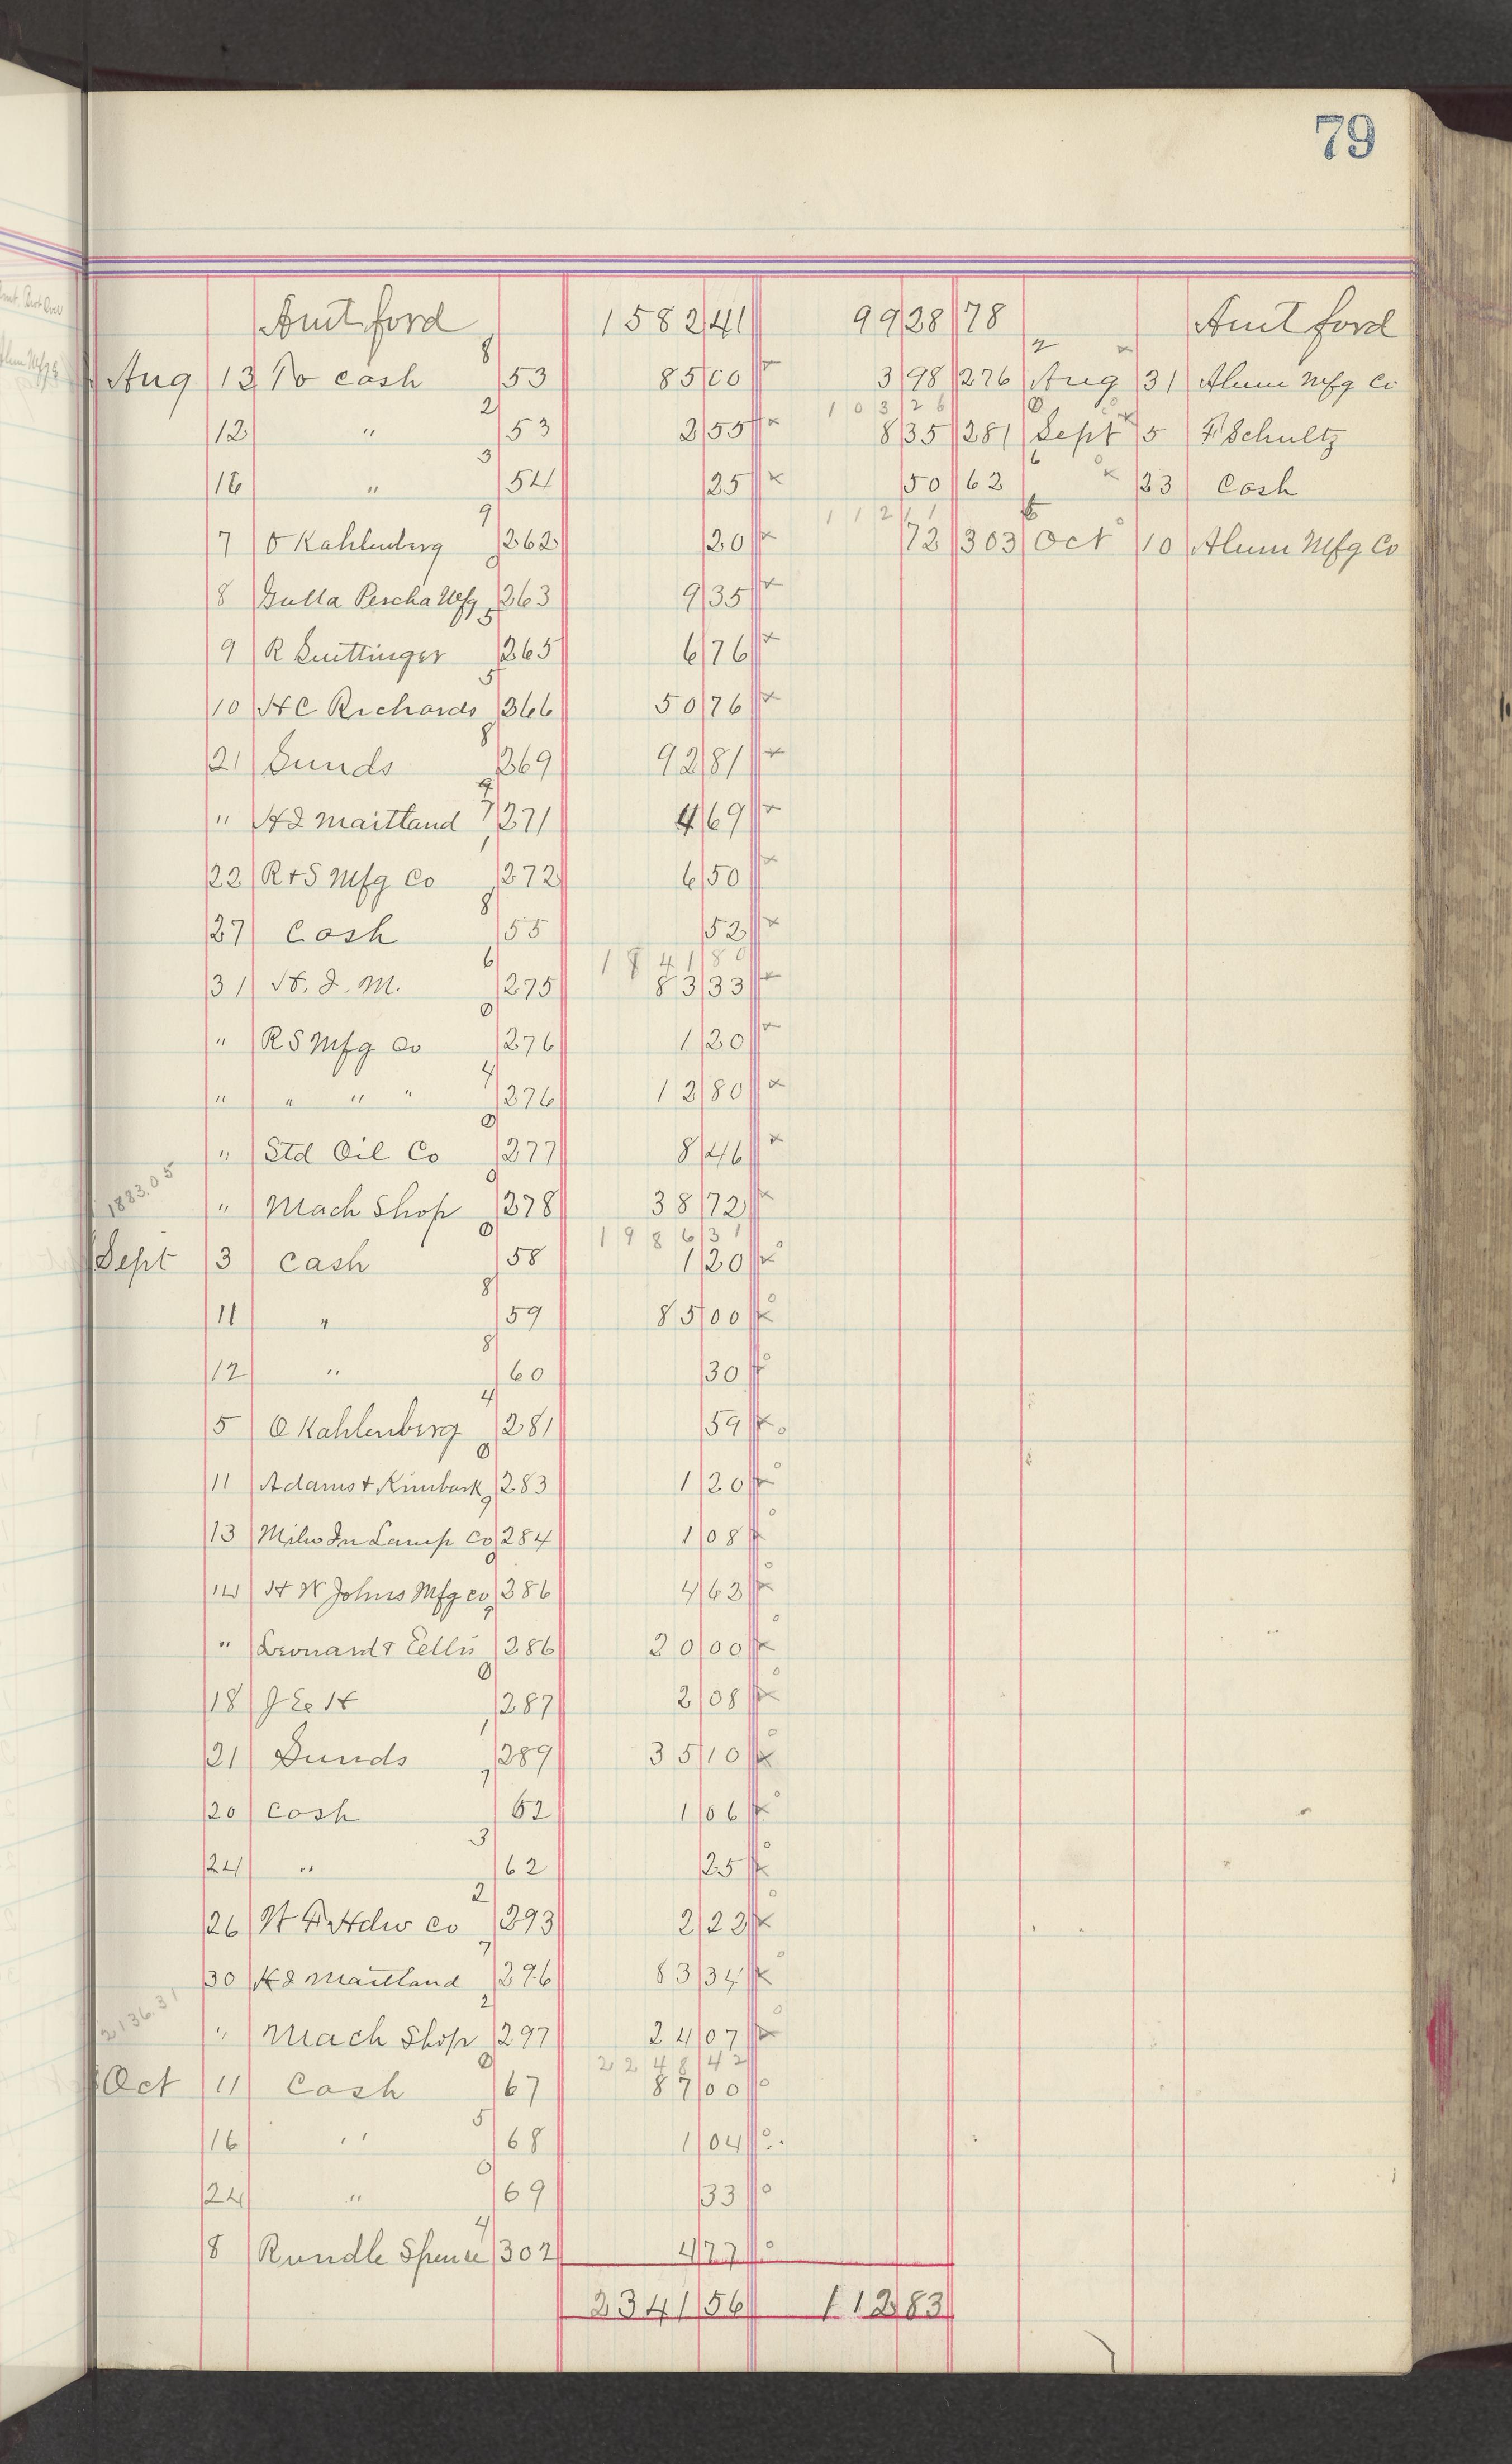 79
Amt ford 1582 41 99 28 78 Amt ford
Aug 13 To cash 53 85 00 3 98 276 Aug 31 Alum Mfg Co
10326
12 " 53 2 55 8 35 281 Sept 5 F Schultz
16 " 54 25 50 62 23 Cash
1121
7 O Kahlenberg 262 20 72 303 Oct 10 Alum Mfg Co
8 Gutta Percha Mfg 263 9 35
9 R Suettinger 265 6 76
10 H C Richards 266 50 76
21 Sunds 269 92 81
" H D Maitland 271 4 69
22 R+S Mfg Co 272 6 50
27 Cash 55 52
1841 80
31 H. D. M. 275 83 33
" R S Mfg Co 276 1 20
" " " " 276 12 80
" Std Oil Co 277 8 46
1883.05
" Mach Shop 278 38 72
1986 31
Sept 3 Cash 58 1 20
11 " 59 85 00
12 " 60 30
5 O Kahlenberg 281 59
11 Adams + Kimbark 283 1 20
13 Milw In Lamp Co 284 1 08
14 H W Johns Mfg Co 286 4 63
" Leonard + Ellis 286 20 00
18 J E H 287 2 08
21 Sunds 289 35 10
20 Cash 62 1 06
24 " 62 25
26 Hdw Co 293 2 22
30 H D Maitland 296 83 34
2136.31
" Mach Shop 297 24 07
2248 42
Oct 11 Cash 67 87 00
16 " 68 1 04
24 " 69 33
8 Rundle Spence 302 4 77
2341 56 112 83